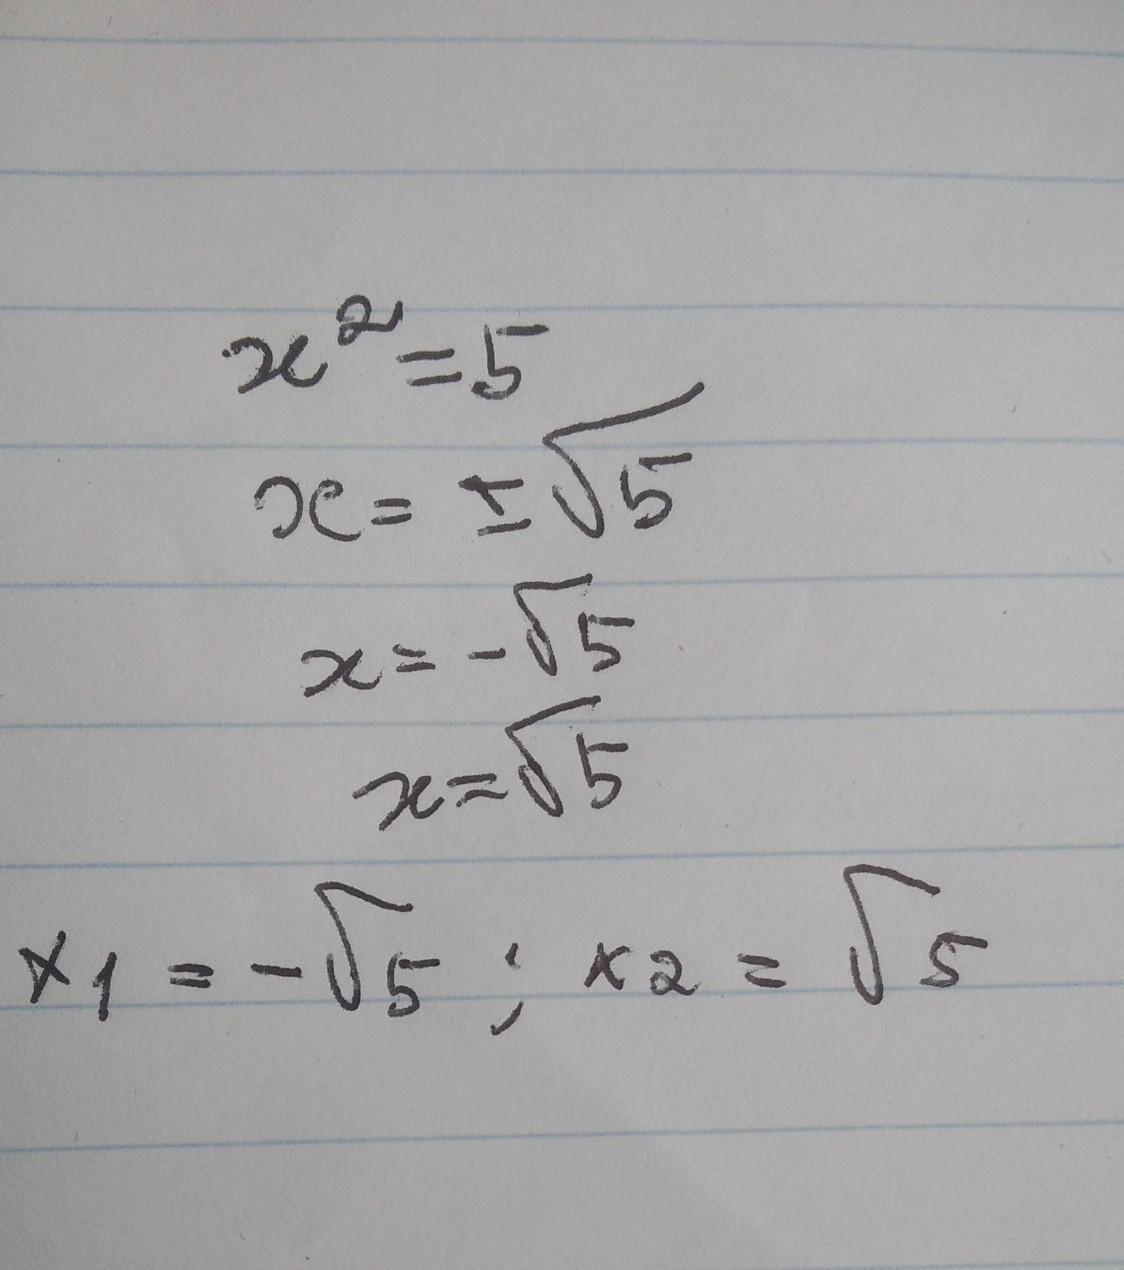 x² = 5
x = ±√5
x = -√5
x = √5
x1 = -√5 ; x2 = √5